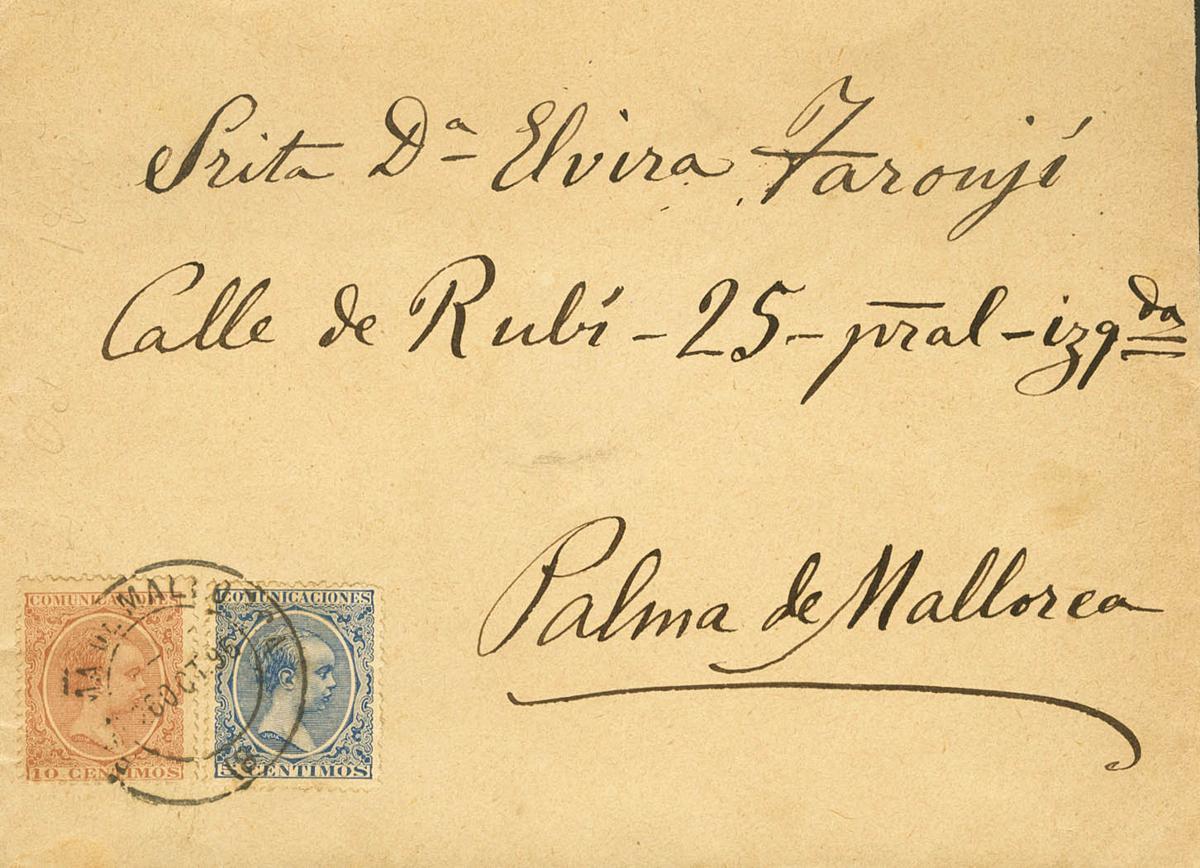 Srita Dª Elvira Taronjí
Calle de Rubí - 25 - pral - izqda
Palma de Mallorca
COMUNICACIONES
10 CENTIMOS
COMUNICACIONES
5 CENTIMOS
MALLORCA
OCT 96